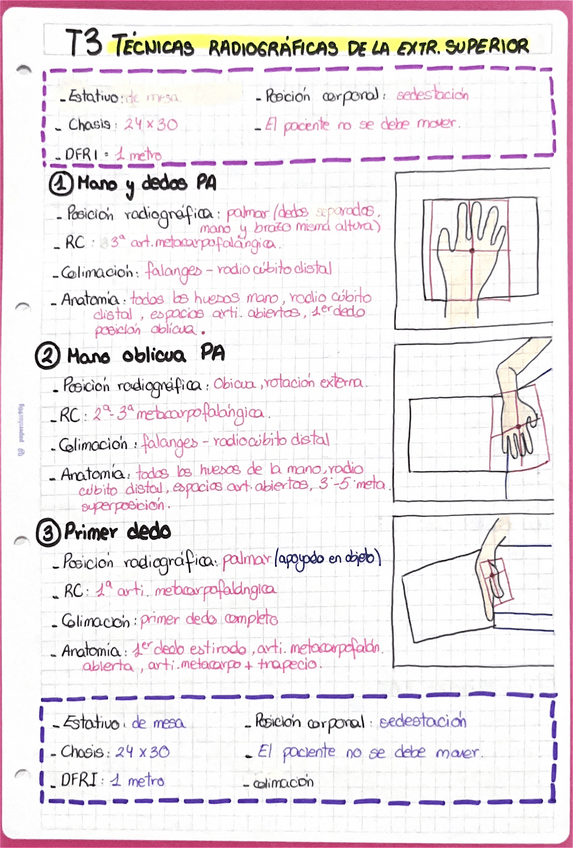 T3 TÉCNICAS RADIOGRÁFICAS DE LA EXTR. SUPERIOR
- Estativo: de mesa
- Chasis: 24 x 30
- DFRI = 1 metro
- Posición corporal: sedestación
- El paciente no se debe mover.
① Mano y dedos PA
- Posición radiográfica: palmar (dedos separados, mano y brazo misma altura)
- RC: 3ª art. metacarpofalángica.
- Colimación: falanges - radio cúbito distal
- Anatomía: todos los huesos mano, radio cúbito
distal, espacios arti. abiertos, 1er dedo
posición oblicua.
② Mano oblicua PA
- Posición radiográfica: Obicua, rotación externa.
- RC: 2ª-3ª metacarpofalángica.
- Colimación: falanges - radio cúbito distal
- Anatomía: todos los huesos de la mano, radio
cúbito distal, espacios art. abiertos, 3º-5º meta.
superposición.
③ Primer dedo
- Posición radiográfica: palmar (apoyado en objeto)
- RC: 1ª arti. metacarpofalángica
- Colimación: primer dedo completo
- Anatomía: 1er dedo estirado, arti. metacarpofalán.
abierta, arti. metacarpo + trapecio.
- Estativo: de mesa
- Chasis: 24 x 30
- DFRI: 1 metro
- Posición corporal: sedestación
- El paciente no se debe mover.
- colimación